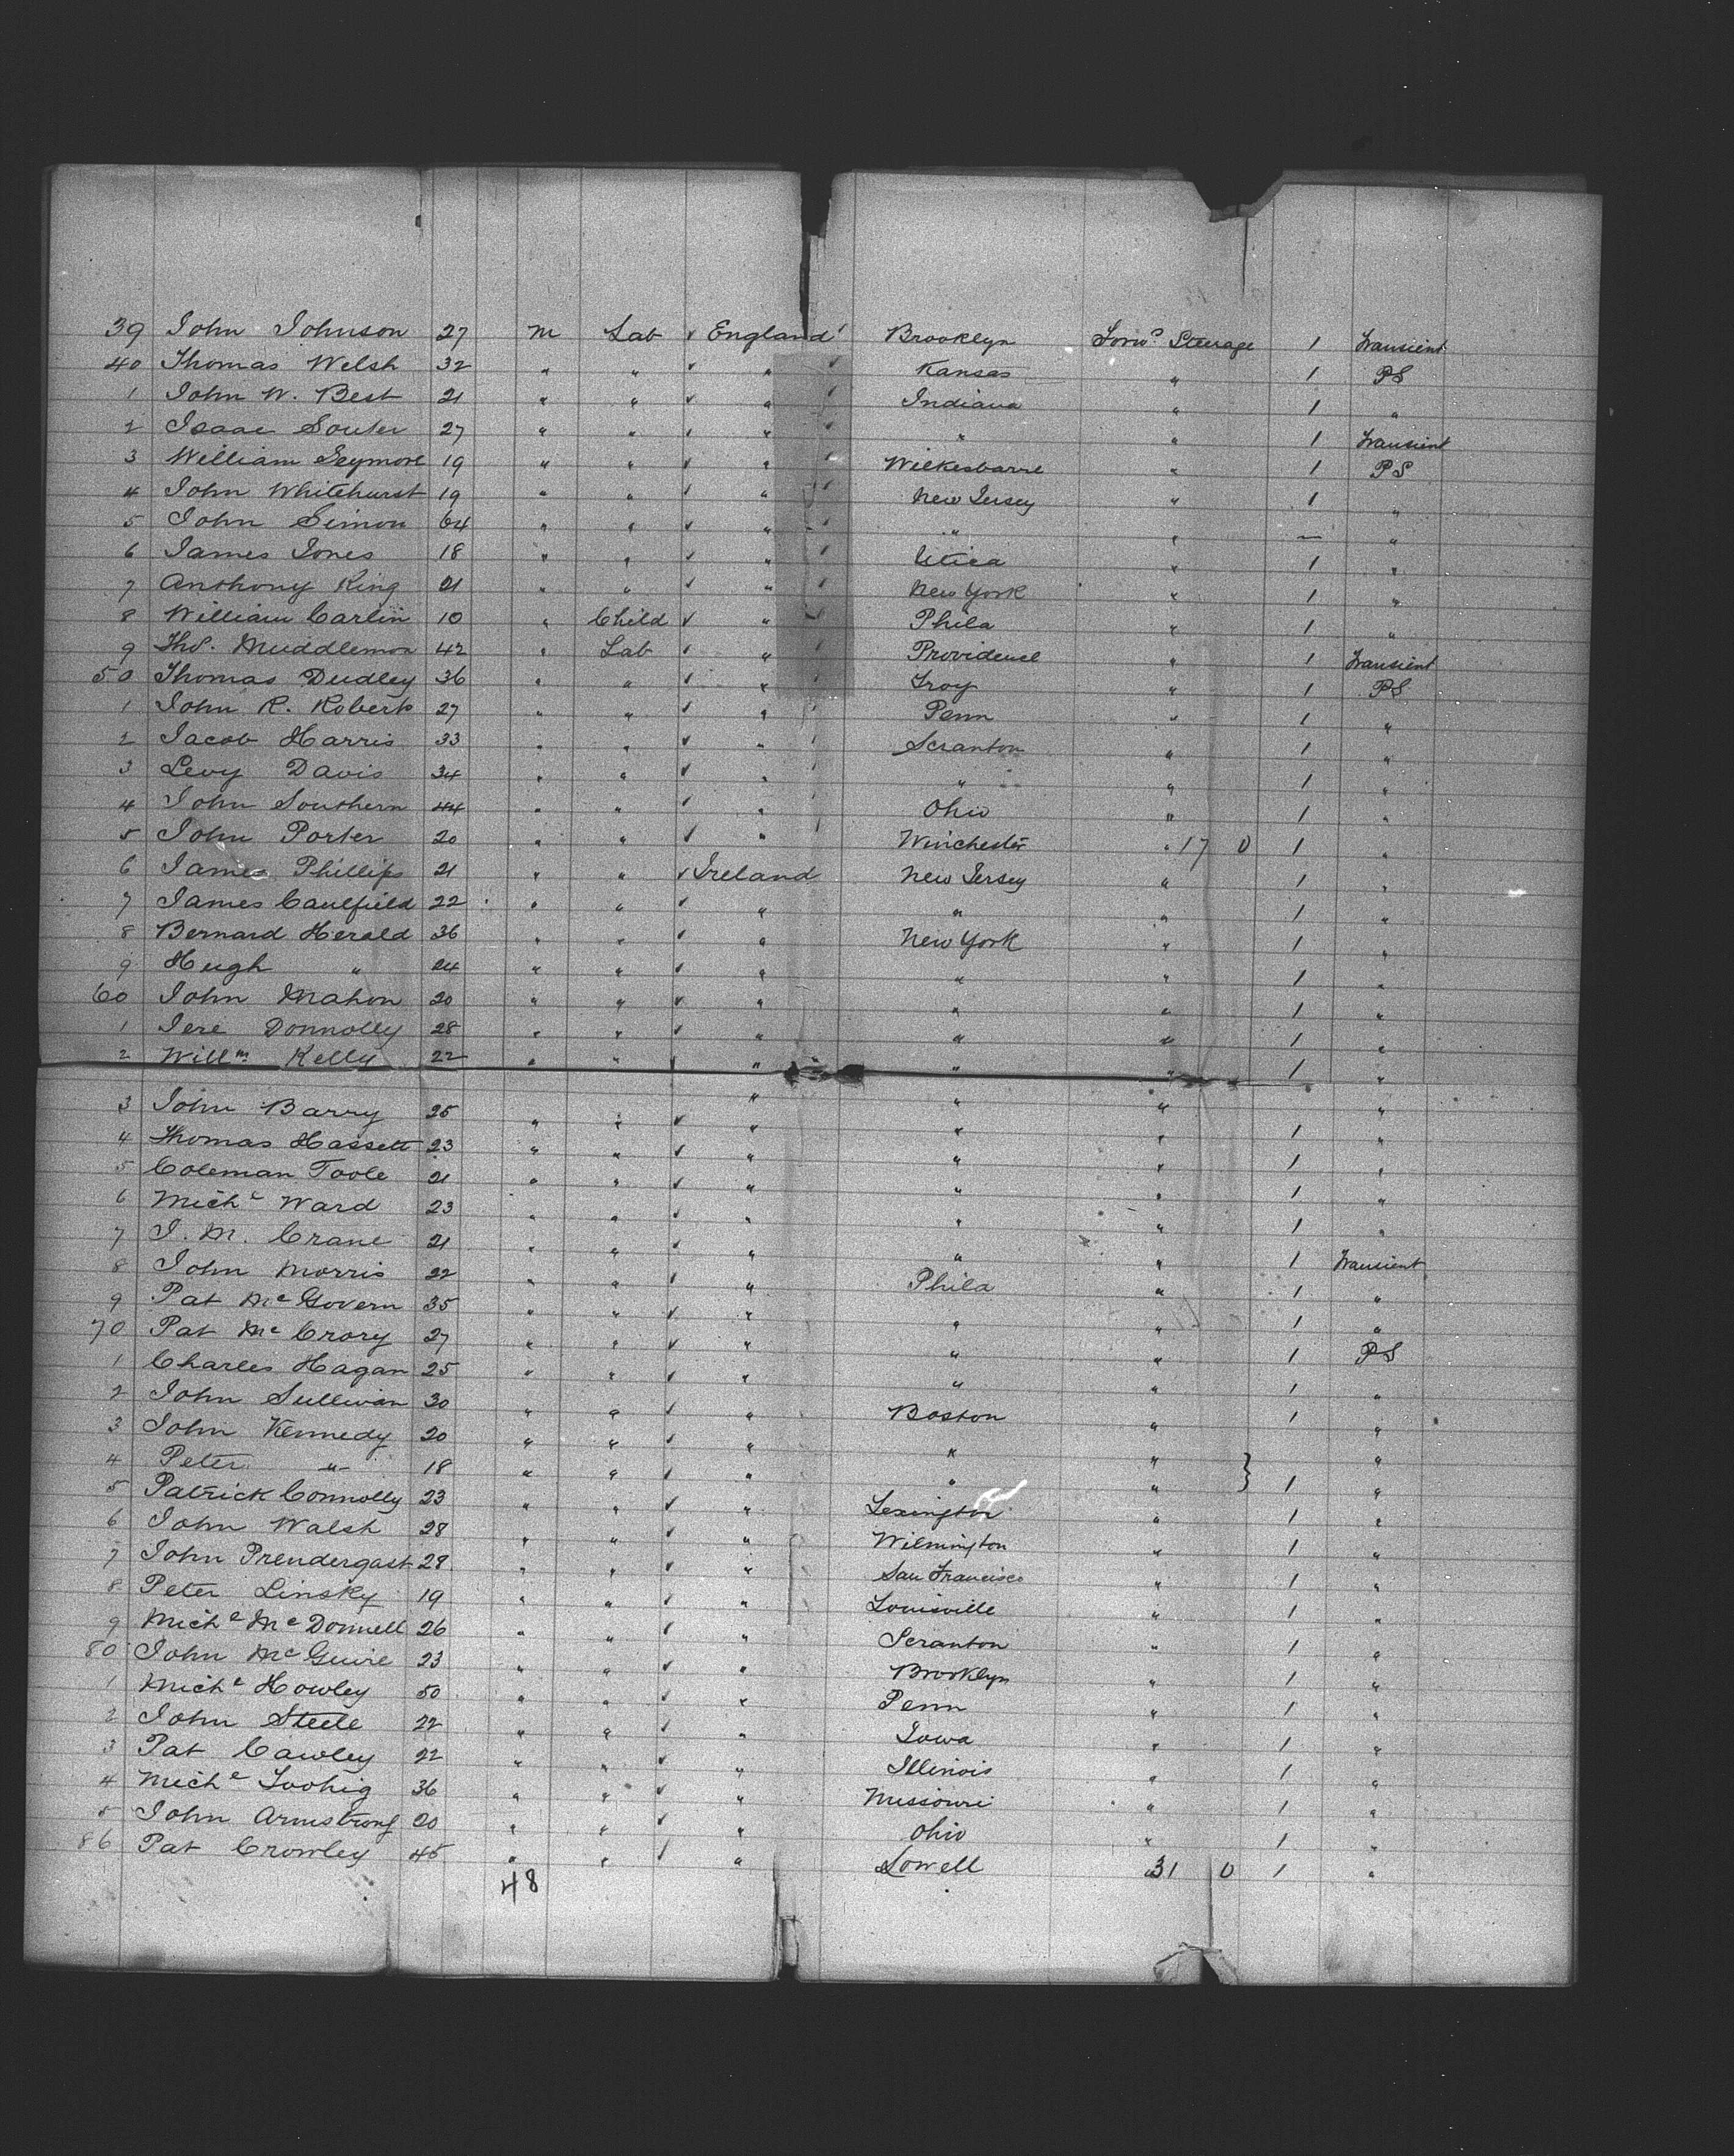 39 John Johnson 27 M Lab ✓ England Brooklyn Forwd Steerage 1 Transient
40 Thomas Welsh 32 " " ✓ " Kansas " 1 PS
1 John W. Best 21 " " ✓ " Indiana " 1 "
2 Isaac Souter 27 " " ✓ " " " 1 Transient
3 William Seymore 19 " " ✓ " Wilkesbarre " 1 PS
4 John Whitehurst 19 " " ✓ " New Jersey " 1 "
5 John Simon 64 " " ✓ " " " — "
6 James Jones 18 " " ✓ " Utica " 1 "
7 Anthony King 21 " " ✓ " New York " 1 "
8 William Carlin 10 " Child ✓ " Phila " 1 "
9 Thos. Muddlemon 42 " Lab ✓ " Providence " 1 Transient
50 Thomas Dudley 36 " " ✓ " Troy " 1 PS
1 John R. Roberts 27 " " ✓ " Penn " 1 "
2 Jacob Harris 33 " " ✓ " Scranton " 1 "
3 Levy Davis 34 " " ✓ " " " 1 "
4 John Southern 44 " " ✓ " Ohio " 1 "
5 John Porter 20 " " ✓ " Winchester " 17 0 1 "
6 James Phillips 21 " " ✓ Ireland New Jersey " 1 "
7 James Caulfield 22 " " ✓ " " " 1 "
8 Bernard Herald 36 " " ✓ " New York " 1 "
9 Hugh " 24 " " ✓ " " " 1 "
60 John Mahon 20 " " ✓ " " " 1 "
1 Jere Donnolly 28 " " ✓ " " " 1 "
2 Willm Kelly 22 " " ✓ " " " 1 "
3 John Barry 25 " " ✓ " " " 1 "
4 Thomas Hassett 23 " " ✓ " " " 1 "
5 Coleman Toole 21 " " ✓ " " " 1 "
6 Michl Ward 23 " " ✓ " " " 1 "
7 J. M. Crane 21 " " ✓ " " " 1 Transient
8 John Morris 22 " " ✓ " Phila " 1 "
9 Pat McGovern 35 " " ✓ " " " 1 "
70 Pat McCrory 27 " " ✓ " " " 1 PS
1 Charles Hagan 25 " " ✓ " " " 1 "
2 John Sullivan 30 " " ✓ " Boston " 1 "
3 John Kennedy 20 " " ✓ " " " "
4 Peter " 18 " " ✓ " " " } 1 "
5 Patrick Connolly 23 " " ✓ " Lexington " 1 "
6 John Walsh 28 " " ✓ " Wilmington " 1 "
7 John Prendergast 28 " " ✓ " San Francisco " 1 "
8 Peter Linsky 19 " " ✓ " Louisville " 1 "
9 Michl McDonnell 26 " " ✓ " Scranton " 1 "
80 John McGuire 23 " " ✓ " Brooklyn " 1 "
1 Michl Howley 50 " " ✓ " Penn " 1 "
2 John Steele 22 " " ✓ " Iowa " 1 "
3 Pat Cawley 22 " " ✓ " Illinois " 1 "
4 Michl Toohig 36 " " ✓ " Missouri " 1 "
5 John Armstrong 20 " " ✓ " Ohio " 1 "
86 Pat Crowley 45 " " ✓ " Lowell " 31 0 1 "
48